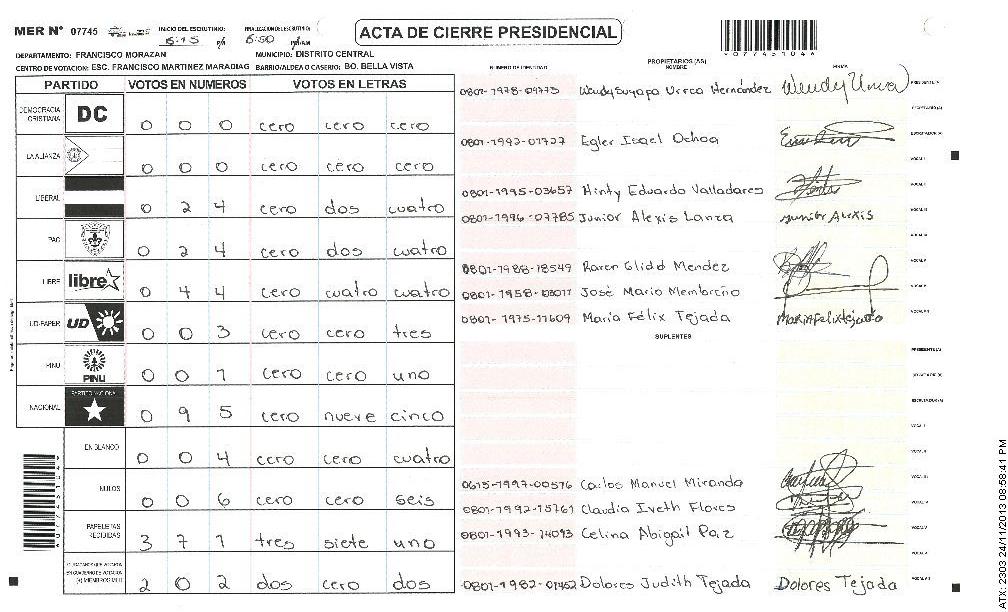 MER N° 07745 INICIO DEL ESCRUTINIO: FINALIZACION DEL ESCRUTINIO:
5:15 6:50
ACTA DE CIERRE PRESIDENCIAL
DEPARTAMENTO: FRANCISCO MORAZAN MUNICIPIO: DISTRITO CENTRAL
CENTRO DE VOTACION: ESC. FRANCISCO MARTINEZ MARADIAG BARRIO/ALDEA O CASERIO: BO. BELLA VISTA
PARTIDO VOTOS EN NUMEROS VOTOS EN LETRAS
DEMOCRACIA CRISTIANA DC 0 0 0 cero cero cero
LA ALIANZA 0 0 0 cero cero cero
LIBERAL 0 2 4 cero dos cuatro
PAC 0 2 4 cero dos cuatro
LIBRE libre 0 4 4 cero cuatro cuatro
UD-FAPER UD 0 0 3 cero cero tres
PINU PINU 0 0 1 cero cero uno
NACIONAL PARTIDO NACIONAL 0 9 5 cero nueve cinco
EN BLANCO 0 0 4 cero cero cuatro
NULOS 0 0 6 cero cero seis
PAPELETAS RECIBIDAS 3 7 1 tres siete uno
CIUDADANOS QUE VOTARON EN CUADERNO DE VOTACION (+) MIEMBROS MER 2 0 2 dos cero dos
NUMERO DE IDENTIDAD PROPIETARIOS (AS) NOMBRE FIRMA
0801-1978-09775 Wendy Suyapa Urrea Hernández Wendy Urrea PRESIDENTE(A)
SECRETARIO(A)
0801-1992-01727 Egler Isael Ochoa ESCRUTADOR(A)
VOCAL I
0801-1995-03657 Hinty Eduardo Valladares VOCAL II
0801-1996-07785 Junior Alexis Lanza Junior Alexis VOCAL III
VOCAL IV
0801-1988-18549 Karen Glidd Mendez VOCAL V
0801-1958-03017 José Mario Membreño VOCAL VI
0801-1975-11609 María Félix Tejada Maria Felix tejada VOCAL VII
SUPLENTES
PRESIDENTE(A)
SECRETARIO(A)
ESCRUTADOR(A)
VOCAL I
VOCAL II
0615-1997-00576 Carlos Manuel Miranda VOCAL III
0801-1992-15761 Claudia Iveth Flores VOCAL IV
0801-1993-14093 Celina Abigail Paz VOCAL V
VOCAL VI
0801-1982-01452 Dolores Judith Tejada Dolores Tejada VOCAL VII
ATX: 2303 24/11/2013 08:58:41 PM